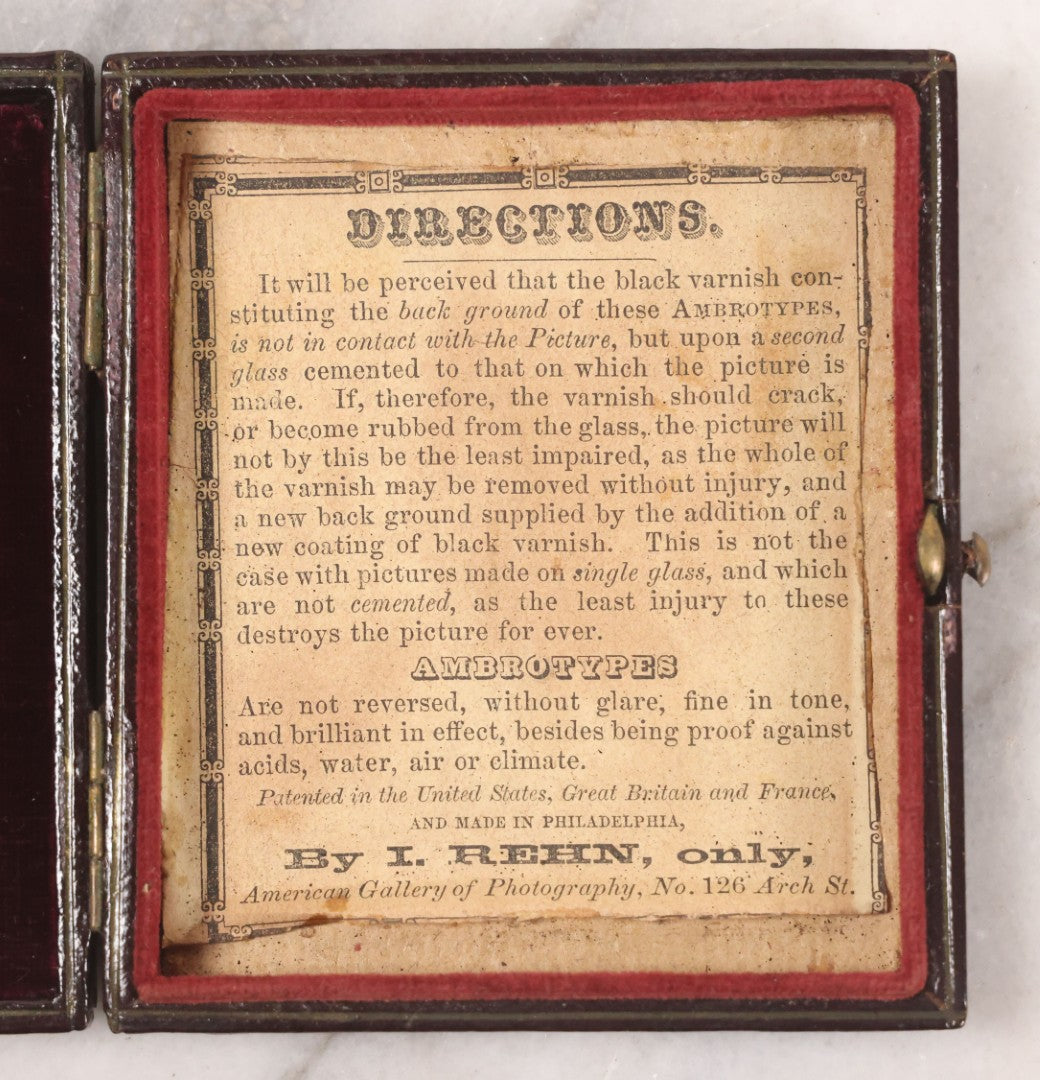 DIRECTIONS.
It will be perceived that the black varnish con-
stituting the back ground of these AMBROTYPES,
is not in contact with the Picture, but upon a second
glass cemented to that on which the picture is
made. If, therefore, the varnish should crack,
or become rubbed from the glass, the picture will
not by this be the least impaired, as the whole of
the varnish may be removed without injury, and
a new back ground supplied by the addition of a
new coating of black varnish. This is not the
case with pictures made on single glass, and which
are not cemented, as the least injury to these
destroys the picture for ever.
AMBROTYPES
Are not reversed, without glare, fine in tone,
and brilliant in effect, besides being proof against
acids, water, air or climate.
Patented in the United States, Great Britain and France,
AND MADE IN PHILADELPHIA,
By I. REHN, only,
American Gallery of Photography, No. 126 Arch St.